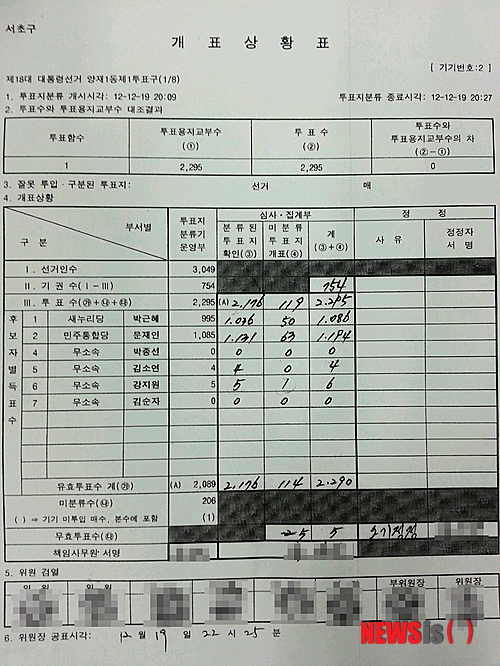 서초구
개 표 상 황 표
[ 기기번호:2 ]
제18대 대통령선거 양재1동제1투표구(1/8)
1. 투표지분류 개시시각: 12-12-19 20:09 투표지분류 종료시각: 12-12-19 20:27
2. 투표수와 투표용지교부수 대조결과
투표함수 투표용지교부수 (①) 투 표 수 (②) 투표수와 투표용지교부수의 차 (②-①)
1 2,295 2,295 0
3. 잘못 투입·구분된 투표지: 선거 매
4. 개표상황
구 분 부서별 투표지 분류기 운영부 심사·집계부 정 정
분류된 투표지 확인(③) 미분류 투표지 개표(④) 계 (③+④) 사 유 정정자 서 명
Ⅰ. 선거인수 3,049
Ⅱ. 기 권 수 (Ⅰ-Ⅲ) 754 754
Ⅲ. 투 표 수 2,295 (A) 2,176 119 2,295
후보자별득표수
1 새누리당 박근혜 995 1,036 50 1,086
2 민주통합당 문재인 1,085 1,131 63 1,194
4 무소속 박종선 0 0 0 0
5 무소속 김소연 4 4 0 4
6 무소속 강지원 5 5 1 6
7 무소속 김순자 0 0 0 0
유효투표수 계 (A) 2,089 2,176 114 2,290
미분류수 206
( ) ⇒ 기기 미투입 매수, 본수에 포함 (1)
무효투표수 5 5
책임사무원·서명
5. 위원 검열
위 원 위 원 부위원장 위원장
6. 위원장 공표시각: 12 월 19 일 22 시 25 분
NEWSis( )